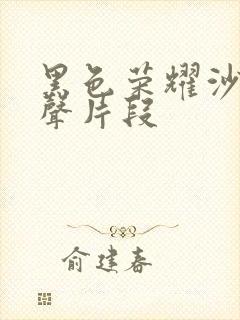 黑色荣耀沙
聲片段
俞建春